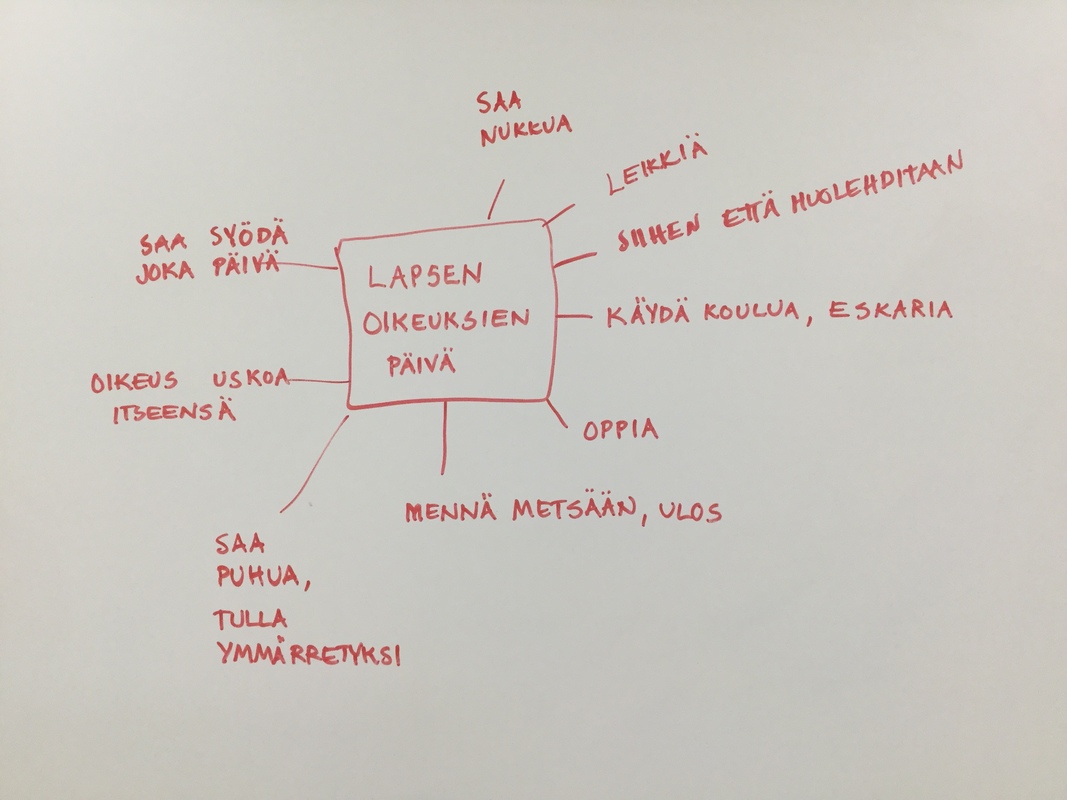 SAA
NUKKUA
LEIKKIÄ
SIIHEN ETTÄ HUOLEHDITAAN
SAA SYÖDÄ
JOKA PÄIVÄ
LAPSEN
OIKEUKSIEN
PÄIVÄ
KÄYDÄ KOULUA, ESKARIA
OIKEUS USKOA
ITSEENSÄ
OPPIA
MENNÄ METSÄÄN, ULOS
SAA
PUHUA,
TULLA
YMMÄRRETYKSI